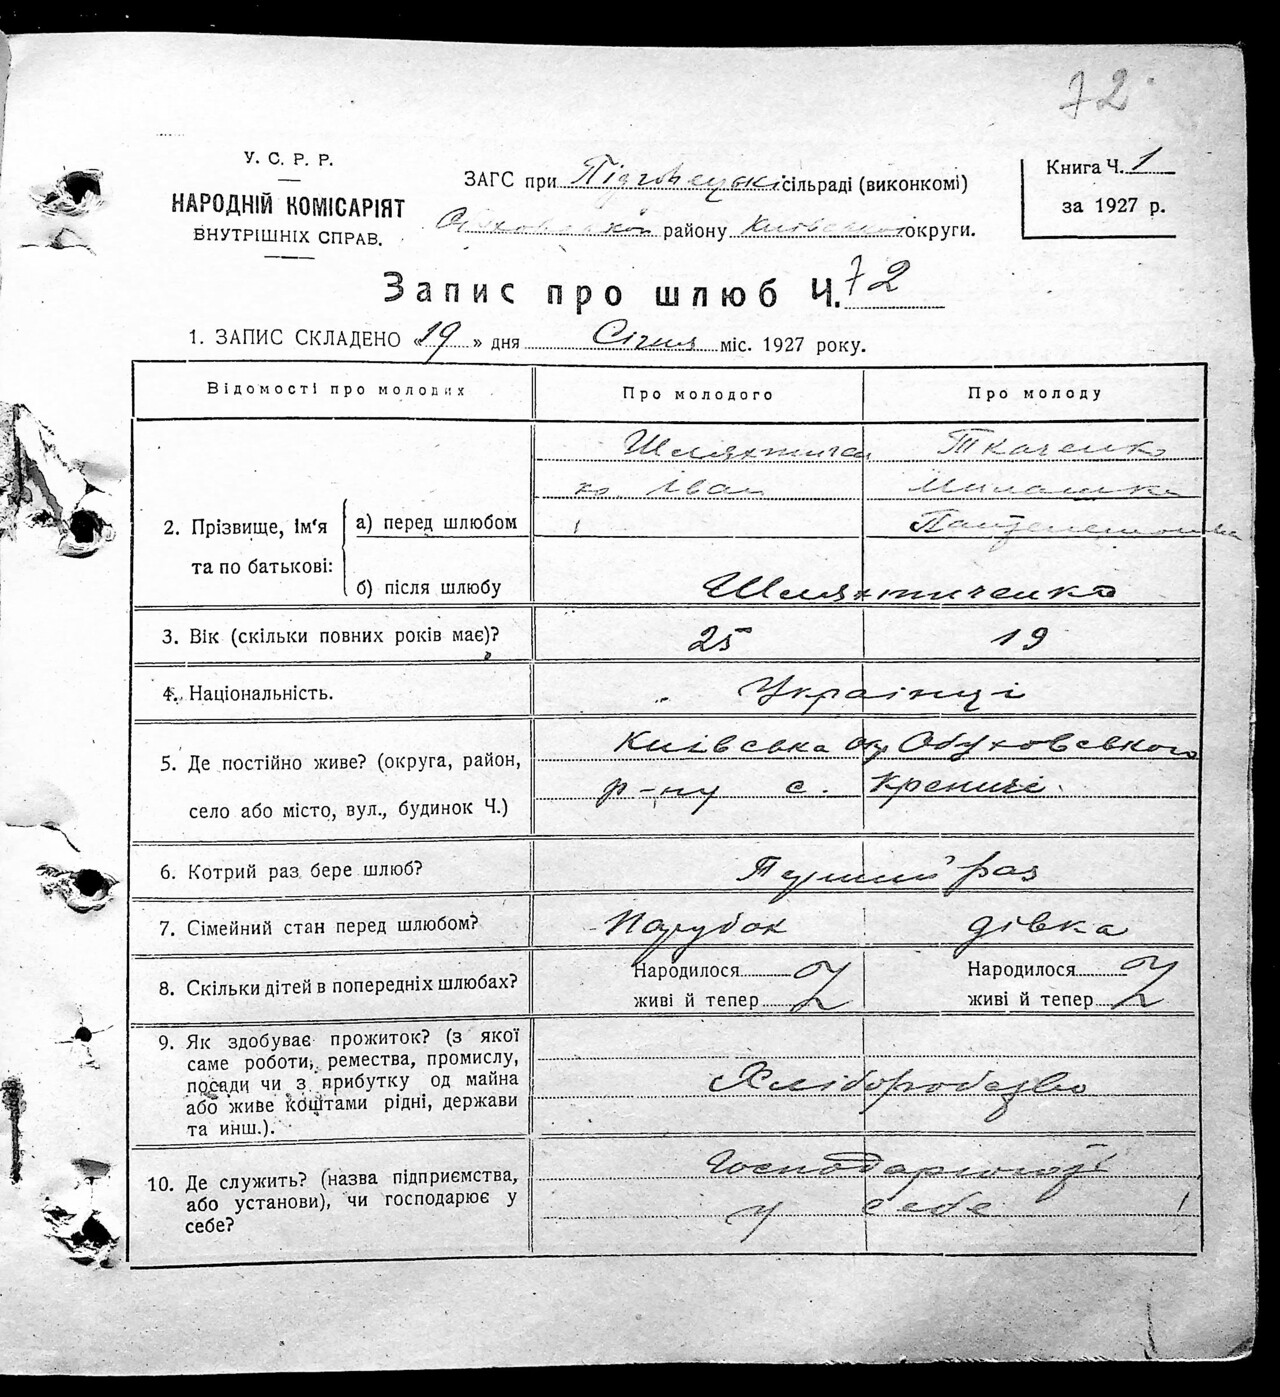 72
У. С. Р. Р.
НАРОДНІЙ КОМІСАРІЯТ
ВНУТРІШНІХ СПРАВ.
ЗАГС при сільраді (виконкомі)
району Київської округи.
Книга Ч. 1
за 1927 р.
Запис про шлюб Ч. 72
1. ЗАПИС СКЛАДЕНО «19» дня Січня міс. 1927 року.
Відомості про молодих
Про молодого
Про молоду
2. Прізвище, ім'я та по батькові:
а) перед шлюбом
Шляхтичен
ко Іван
Ткаченко
б) після шлюбу
Шляхтиченко
3. Вік (скільки повних років має)?
25
19
4. Національність.
Українці
5. Де постійно живе? (округа, район,
село або місто, вул., будинок Ч.)
Київська окр Обуховського
р-ну с. Креничі.
6. Котрий раз бере шлюб?
Перший раз
7. Сімейний стан перед шлюбом?
Парубок
дівка
8. Скільки дітей в попередніх шлюбах?
Народилося
живі й тепер
Народилося
живі й тепер
9. Як здобуває прожиток? (з якої
саме роботи, ремества, промислу,
посади чи з прибутку од майна
або живе коштами рідні, держави
та инш.).
Хліборобство
10. Де служить? (назва підприємства,
або установи), чи господарює у
себе?
у себе